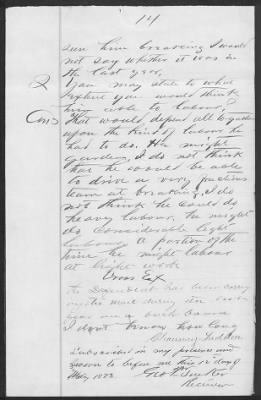 14
seen him breaking I would
not say whether it was in
the last year,
Q You may state to what
extent you would think
him able to labour,
Ans That would depend all together
upon the kind of labour he
had to do. He might
garden, I do not think
that he would be able
to drive a very
team at breaking, I do
not think he could do
heavy labour, He might
do considerable light
labour a portion of the
time he might labour
at light work
Cross Ex
the Defendant has been carry
ing the mail during the
year on a buck board
I dont know how long
Chauncy
Subscribed in my presence and
sworn to before me this 12" day of
May 1883
Geo
Receiver